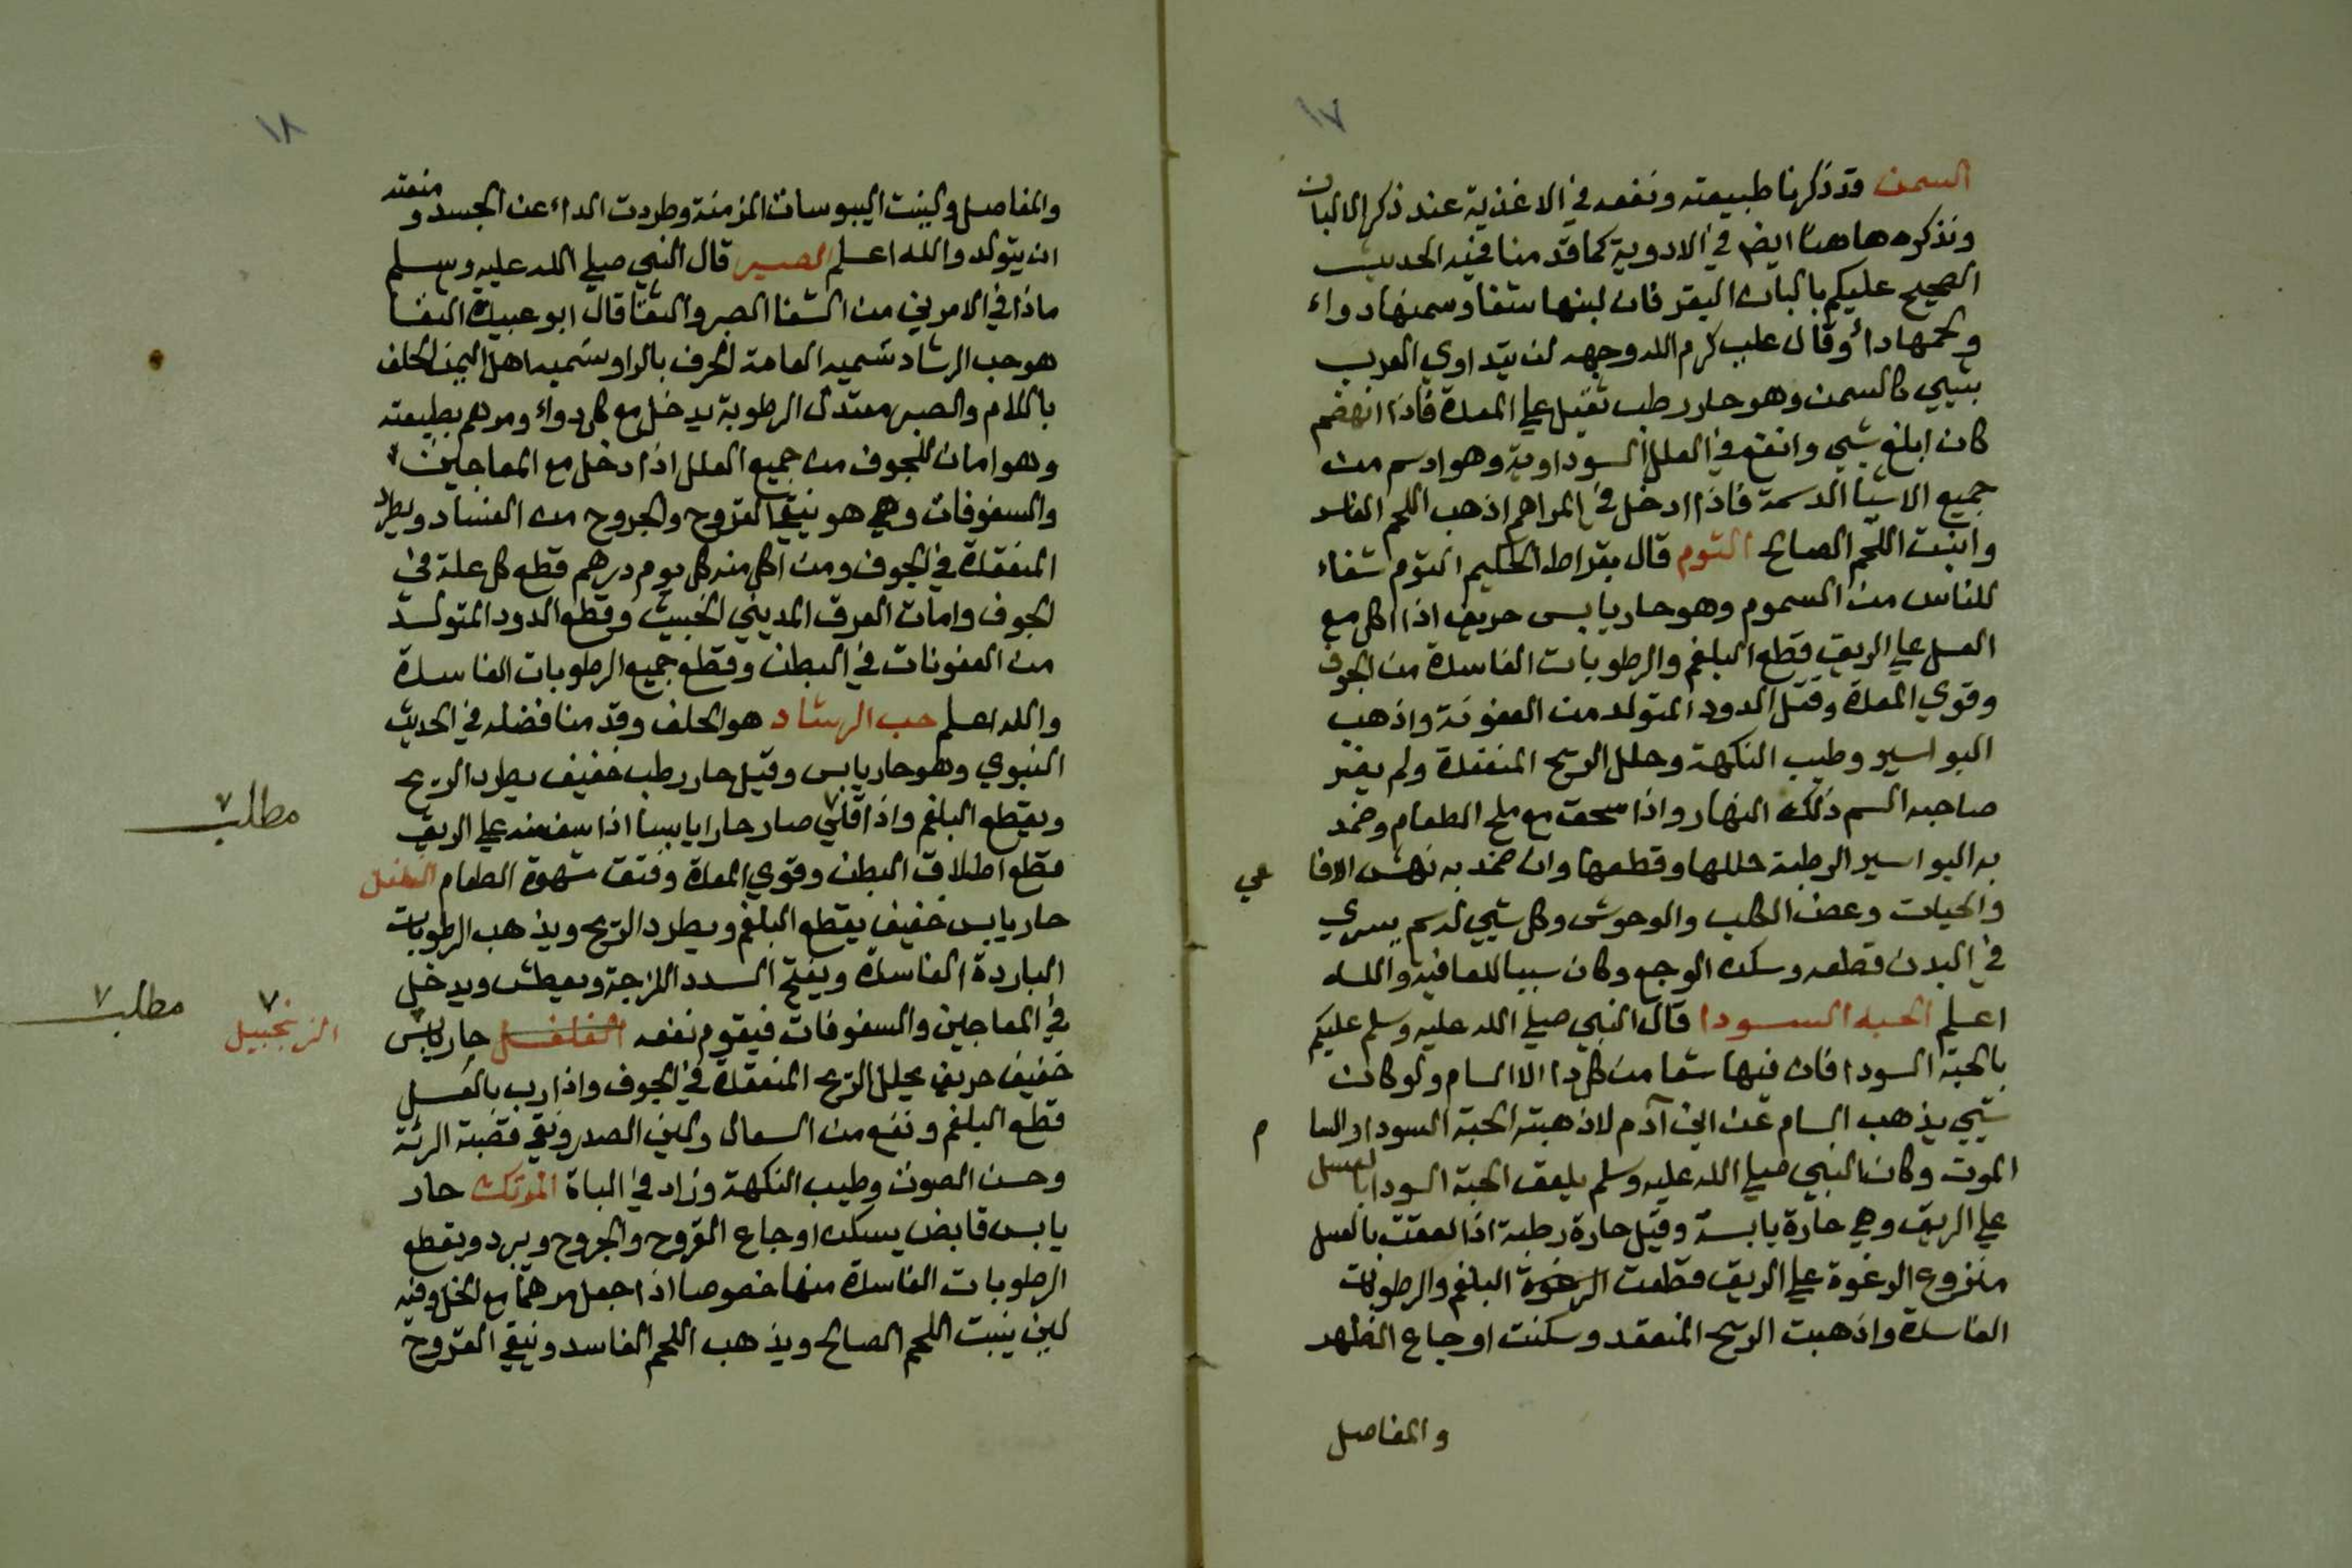 ١٧
السمن قد ذكرنا طبيعته ونفعه في الاغذية عند ذكر الالبان
ونذكره هاهنا ايضا في الادوية كما قدمنا فيه الحديث
الصحيح عليكم بالبان البقر فان لبنها شفا وسمنها دواء
ولحمها داء وقال علي كرم الله وجهه لن يتداوي العرب
بشيي كالسمن وهو حار رطب ثقيل علي المعدة فاذا انهضم
كان ابلغ شيي وانفع في العلل السوداوية وهو ادسم من
جميع الاشيا الدسمة فاذا ادخل في المراهم اذهب اللحم الفاسد
وانبت اللحم الصالح الثوم قال بقراط الحكيم الثوم شفاء
للناس من السموم وهو حار يابس حريف اذا اكل مع
العسل علي الريق قطع البلغم والرطوبات الفاسدة من الجوف
وقوي المعدة وقتل الدود المتولد من العفونة واذهب
البواسير وطيب النكهة وحلل الريح المنعقدة ولم يضر
صاحبه السم ذلك النهار واذا سحق مع ملح الطعام وضمد
به البواسير الرطبة حللها وقطعها وان ضمد به نهش الافا عي
والحيات وعض الكلب والوحوش وكل شيي له سم يسري
في البدن قطعه وسكن الوجع وكان سببا للعافية والله
اعلم الحبه السودا قال النبي صلي الله عليه وسلم عليكم
بالحبة السودا فان فيها شفا من كل دا الا السام ولو كان
شيي يذهب السام عن ابن آدم لاذهبته الحبة السودا والسا م
الموت وكان النبي صلي الله عليه وسلم يلعق الحبة السودا بالعسل
علي الريق وهي حارة يابسة وقيل حارة رطبة اذا لعقت بالعسل
منزوع الرغوة علي الريق قطعت الرغوة البلغم والرطوبات
الفاسدة واذهبت الريح المنعقد وسكنت اوجاع الظهر
والمفاصل
١٨
والمفاصل ولينت اليبوسات المزمنة وطردت الداء عن الجسد ومنعته
ان يتولد والله اعلم الصبر قال النبي صلي الله عليه وسلم
ماذا في الامرين من الشفا الصبر والثفا قال ابو عبيدة الثفا
هو حب الرشاد تسميه العامة الحرف بالرا وتسميه اهل اليمن الحلف
باللام والصبر معتدل الرطوبة يدخل مع كل دواء ومرهم بطبيعته
وهو امان للجوف من جميع العلل اذا دخل مع المعاجين
والسفوفات وهي هو ينقي القروح والجروح من الفساد ويطرد
المنعقدة في الجوف ومن اكل منه كل يوم درهم قطع كل علة في
الجوف وامات العرق المديني الخبيث وقطع الدود المتولد
من العفونات في البطن وقطع جميع الرطوبات الفاسدة
والله اعلم حب الرشاد هو الحلف وقدمنا فضله في الحديث
النبوي وهو حار يابس وقيل حار رطب خفيف يطرد الريح
ويقطع البلغم واذا قلي صار حارا يابسا اذا سف منه علي الريق
مطلب
قطع اطلاق البطن وقوي المعدة وفتق شهوة الطعام الفلفل
حار يابس خفيف يقطع البلغم ويطرد الريح ويذهب الرطوبات
الباردة الفاسدة ويفتح السدد اللزجة ويعطش ويدخل
في المعاجين والسفوفات فيقوم نفعه الفلفل حار يابس
الزنجبيل
مطلب
خفيف حريف يحلل الريح المنعقدة في الجوف واذا ربب بالعسل
قطع البلغم ونفع من السعال ولين الصدر ونقي قصبة الرئة
وحسن الصوت وطيب النكهة وزاد في الباة المرتك حار
يابس قابض يسكن اوجاع القروح والجروح ويبرد ويقطع
الرطوبات الفاسدة منها خصوصا اذا جعل مرهما مع الخل وفيه
لين ينبت اللحم الصالح ويذهب اللحم الفاسد وينقي القروح